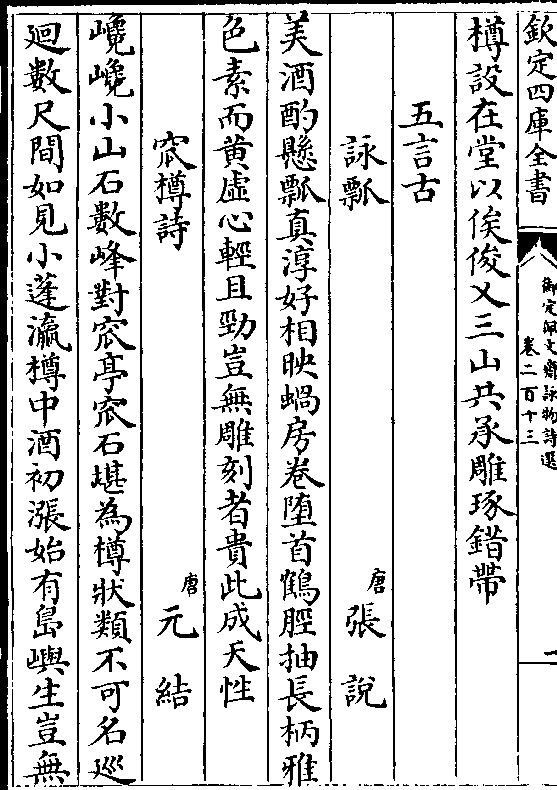 欽定四庫全書
御定佩文齋詠物詩選
卷二百十三
樽設在堂以俟俊乂三山共承雕琢錯帶
五言古
詠瓢 唐 張說
美酒酌懸瓢真淳好相映蝸房卷墮首鶴脛抽長柄雅
色素而黃虛心輕且勁豈無雕刻者貴此成天性
窊樽詩 唐 元結
巉巉小山石數峰對窊亭窊石堪為樽狀類不可名巡
迴數尺間如見小蓬瀛樽中酒初漲始有島嶼生豈無